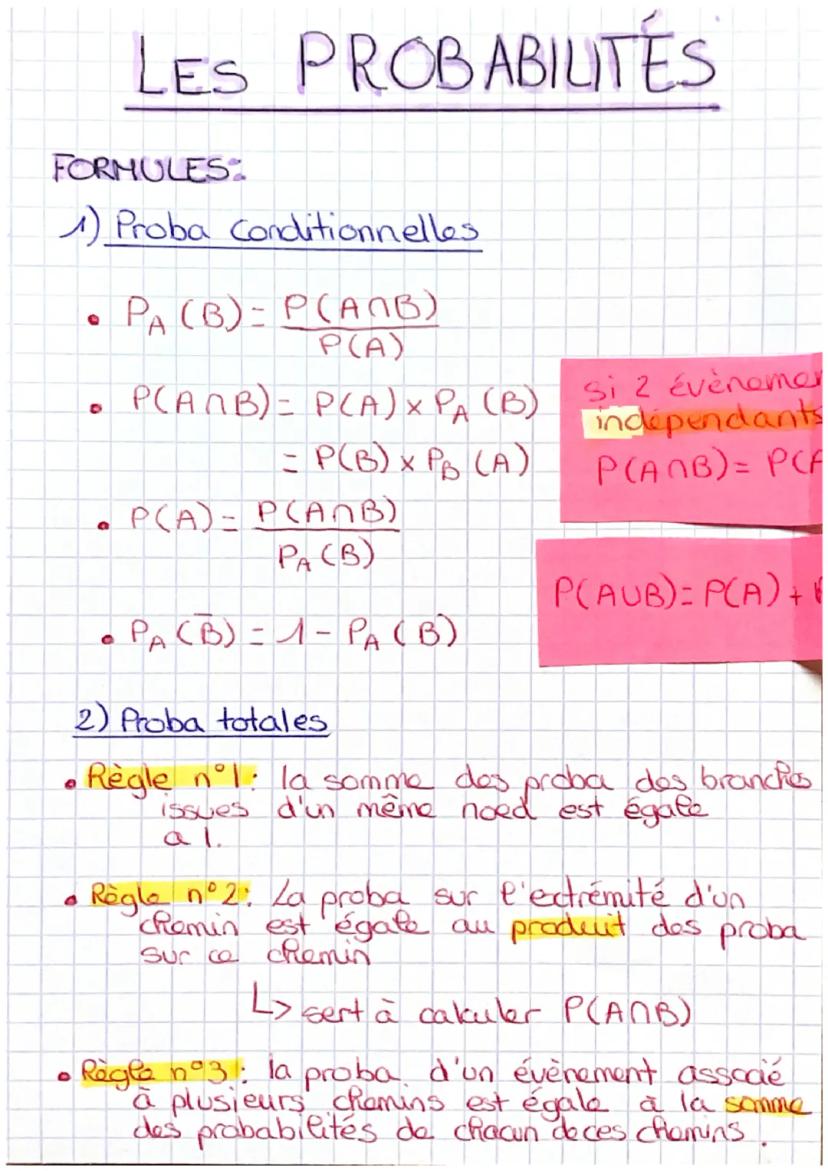 LES PROBABILITÉS
FORMULES:
1) Proba conditionnelles
• PA (B) = P(A∩B)
P(A)
• P(A∩B) = P(A) x PA (B)
= P(B) x PB (A)
• P(A) = P(A∩B)
PA (B)
• PA (B̄) = 1 - PA (B)
si 2 évènemen
indépendants
P(A∩B) = P(A
P(A∪B) = P(A) +
2) Proba totales
• Règle n°1: la somme des proba des branches
issues d'un même noed est égale
a 1.
• Règle n°2: La proba sur l'extrémité d'un
chemin est égale au produit des proba
sur ce chemin
↳ sert à calculer P(A∩B)
• Règle n°3: la proba d'un évènement associé
à plusieurs chemins est égale à la somme
des probabilités de chacun de ces chemins.